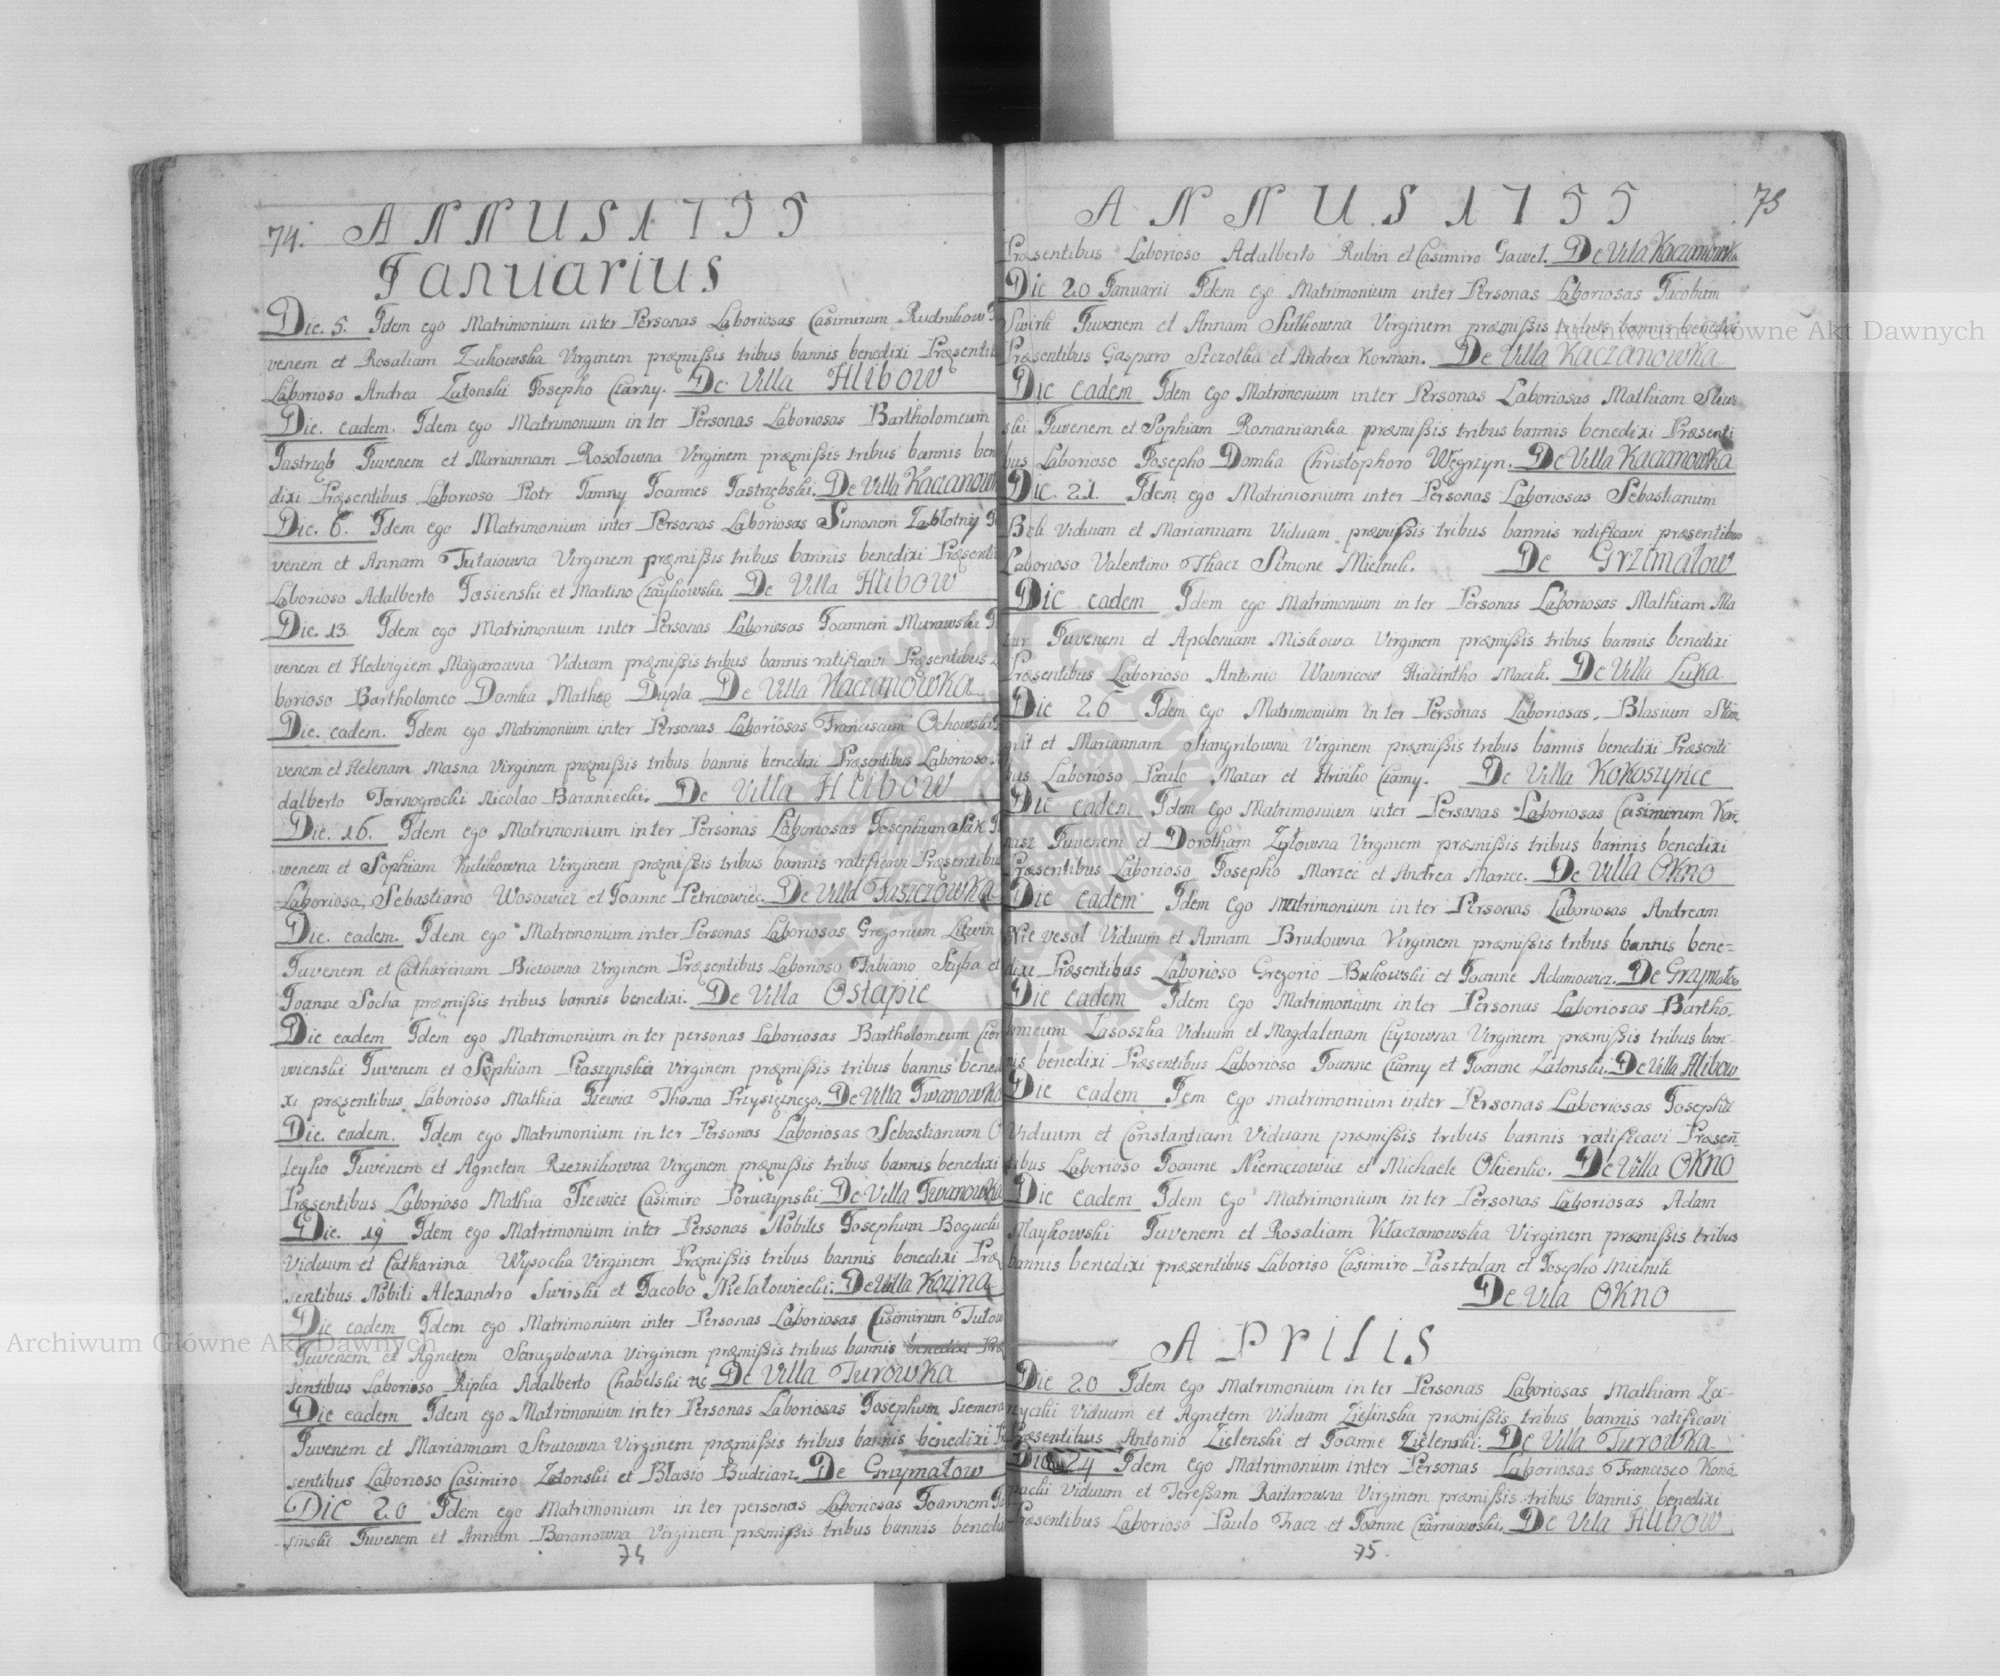 74. ANNUS 1755
Januarius
Die. 5. Idem ego Matrimonium inter Personas Laboriosas Casimirum Rudnikow Ju
venem et Rosaliam Zukowska Virginem præmissis tribus bannis benedixi Præsenti
Laborioso Andrea Zatonski Josepho Czarny. De Villa Hlibow
Die. eadem. Idem ego Matrimonium inter Personas Laboriosas Bartholomeum
Jastrząb Juvenem et Mariannam Rosołowna Virginem præmissis tribus bannis ben
dixi Præsentibus Laborioso Piotr Tamny Joannes Jastrzębski. De Villa Kaczanow
Die. 6. Idem ego Matrimonium inter Personas Laboriosas Simonem Zabłotny Ju
venem et Annam Tutaiowna Virginem præmissis tribus bannis benedixi Præsenti
Laborioso Adalberto Jasienski et Martino Czaykowski. De Villa Hlibow
Die. 13. Idem ego Matrimonium inter Personas Laboriosas Joannem Murawski Ju
venem et Hedvigiem Magarowna Viduam præmissis tribus bannis ratificavi Præsentibus La
borioso Bartholomeo Domka Matheo Dupla De Villa Kaczanowka
Die. eadem. Idem ego Matrimonium inter Personas Laboriosas Franciscum Ochowski Ju
venem et Helenam Masna Virginem præmissis tribus bannis benedixi Præsentibus Laborioso A
dalberto Tarnogrocki Nicolao Baraniecki. De Villa Hlibow
Die. 16. Idem ego Matrimonium inter Personas Laboriosas Josephum Sak Ju
venem et Sophiam Kulikowna Virginem præmissis tribus bannis ratificavi Præsentibu
Laborioso, Sebastiano Wosowicz et Joanne Petricowiec. De Villa Faszczowka
Die. eadem. Idem ego Matrimonium inter Personas Laboriosas Gregorium Litwin
Juvenem et Catharinam Biczowna Virginem Præsentibus Laborioso Fabiano Szyba et
Joanne Socha præmissis tribus bannis benedixi. De Villa Ostapie
Die eadem Idem ego Matrimonium inter personas Laboriosas Bartholomeum Czer
wienski Juvenem et Sophiam Ptaszynska virginem præmissis tribus bannis bened
xi præsentibus Laborioso Mathia Jzewicz Thoma Przysiężnego. De Villa Jwanowka
Die. eadem. Idem ego Matrimonium inter Personas Laboriosas Sebastianum O
leyko Juvenem et Agnetem Rzeznikowna Virginem præmissis tribus bannis benedixi
Præsentibus Laborioso Mathia Jzewicz Casimiro Poruczynski De Villa Jwanowka
Die. 19 Idem ego Matrimonium inter Personas Nobiles Josephum Bogucki
Viduum et Catharina Wysocka Virginem Præmissis tribus bannis benedixi Præ
sentibus Nobili Alexandro Swirski et Jacobo Metałowiecki. De Villa Kozina
Die eadem Idem ego Matrimonium inter Personas Laboriosas Casimirum Tutow
Juvenem et Agnetem Szragulowna virginem præmissis tribus bannis benedixi Præ
sentibus Laborioso Ripka Adalberto Chabelski De Villa Turowka
Die eadem Idem ego Matrimonium inter Personas Laboriosas Josephum Szemera
Juvenem et Mariannam Struzowna virginem præmissis tribus bannis benedixi P
sentibus Laborioso Casimiro Zatonski et Blasio Budziarz. De Grzymałow
Die 20 Idem ego Matrimonium inter personas Laboriosas Joannem Ja
sinski Juvenem et Annam Baranowna Virginem præmissis tribus bannis bened
74
ANNUS 1755 75
Præsentibus Laborioso Adalberto Rubin et Casimiro Gaweł. De Vila Kaczanowka
Die 20 Januarii Idem ego Matrimonium inter Personas Laboriosas Jacobum
Swirk Juvenem et Annam Sulkowna Virginem præmissis tribus bannis benedixi
Præsentibus Gasparo Szczotka et Andrea Korman. De Villa Kaczanowka
Die eadem Idem ego Matrimonium inter Personas Laboriosas Mathiam
ski Juvenem et Sophiam Romanianka præmissis tribus bannis benedixi Præsenti
bus Laborioso Josepho Domka Christophoro Węgrzyn. De Villa Kaczanowka
Die. 21. Idem ego Matrimonium inter Personas Laboriosas Sebastianum
Beli Viduum et Mariannam Viduam præmissis tribus bannis ratificavi præsentibus
Laborioso Valentino Tkacz Simone Mielnik. De Grzimałow
Die eadem Idem ego Matrimonium inter Personas Laboriosas Mathiam Ma
zur Juvenem et Apoloniam Miskowa Virginem præmissis tribus bannis benedixi
Præsentibus Laborioso Antonio Wawnicow Hiacintho Macik. De Villa Luka
Die 26 Idem ego Matrimonium inter Personas Laboriosas, Blasium Stan
grit et Mariannam Stangritowna Virginem præmissis tribus bannis benedixi Præsenti
bus Laborioso Paulo Mazur et Hrinko Czarny. De Villa Kokoszynce
Die eadem Idem ego Matrimonium inter Personas Laboriosas Casimirum Kar
nasz Juvenem et Dorotham Zytowna Virginem præmissis tribus bannis benedixi
Præsentibus Laborioso Josepho Marzec et Andrea Marzec. De Villa Okno
Die eadem Idem Ego Matrimonium inter Personas Laboriosas Andream
Nie vesoł Viduum et Annam Brudowna Virginem præmissis tribus bannis bene-
dixi Præsentibus Laborioso Gregorio Bukowski et Joanne Adamowicz. De Grzymało
Die eadem Idem Ego Matrimonium inter Personas Laboriosas Bartho-
lomeum Lasoszka Viduum et Magdalenam Czyzowna Virginem præmissis tribus ban-
nis benedixi Præsentibus Laborioso Joanne Czarny et Joanne Zatonski. De Villa Hlibow
Die eadem Jem ego matrimonium inter Personas Laboriosas Josephū
Viduum et Constantiam Viduam præmissis tribus bannis ratificavi Præsen-
tibus Laborioso Joanne Niemczowicz et Michaele Okienko. De Villa Okno
Die eadem Idem Ego Matrimonium inter Personas Laboriosas Adam
Maykowski Juvenem et Rosaliam Kłaczanowska Virginem præmissis tribus
bannis benedixi præsentibus Laboriso Casimiro Pasztalan et Josepho Mielnik
De Vila Okno
Aprilis
Die 20 Idem ego Matrimonium inter Personas Laboriosas Mathiam Za-
rzycki Viduum et Agnetem Viduam Zielinska præmissis tribus bannis ratificavi
Præsentibus Antonio Zielenski et Joanne Zielenski. De Villa Turowka
Die 24 Idem ego Matrimonium inter Personas Laboriosas Francisco Kono
packi Viduum et Teressam Raitarowna Virginem præmissis tribus bannis benedixi
Præsentibus Laborioso Paulo Tracz et Joanne Czarniawski. De Vila Hlibow
75.
Archiwum Główne Akt Dawnych
Archiwum Główne Akt Dawnych